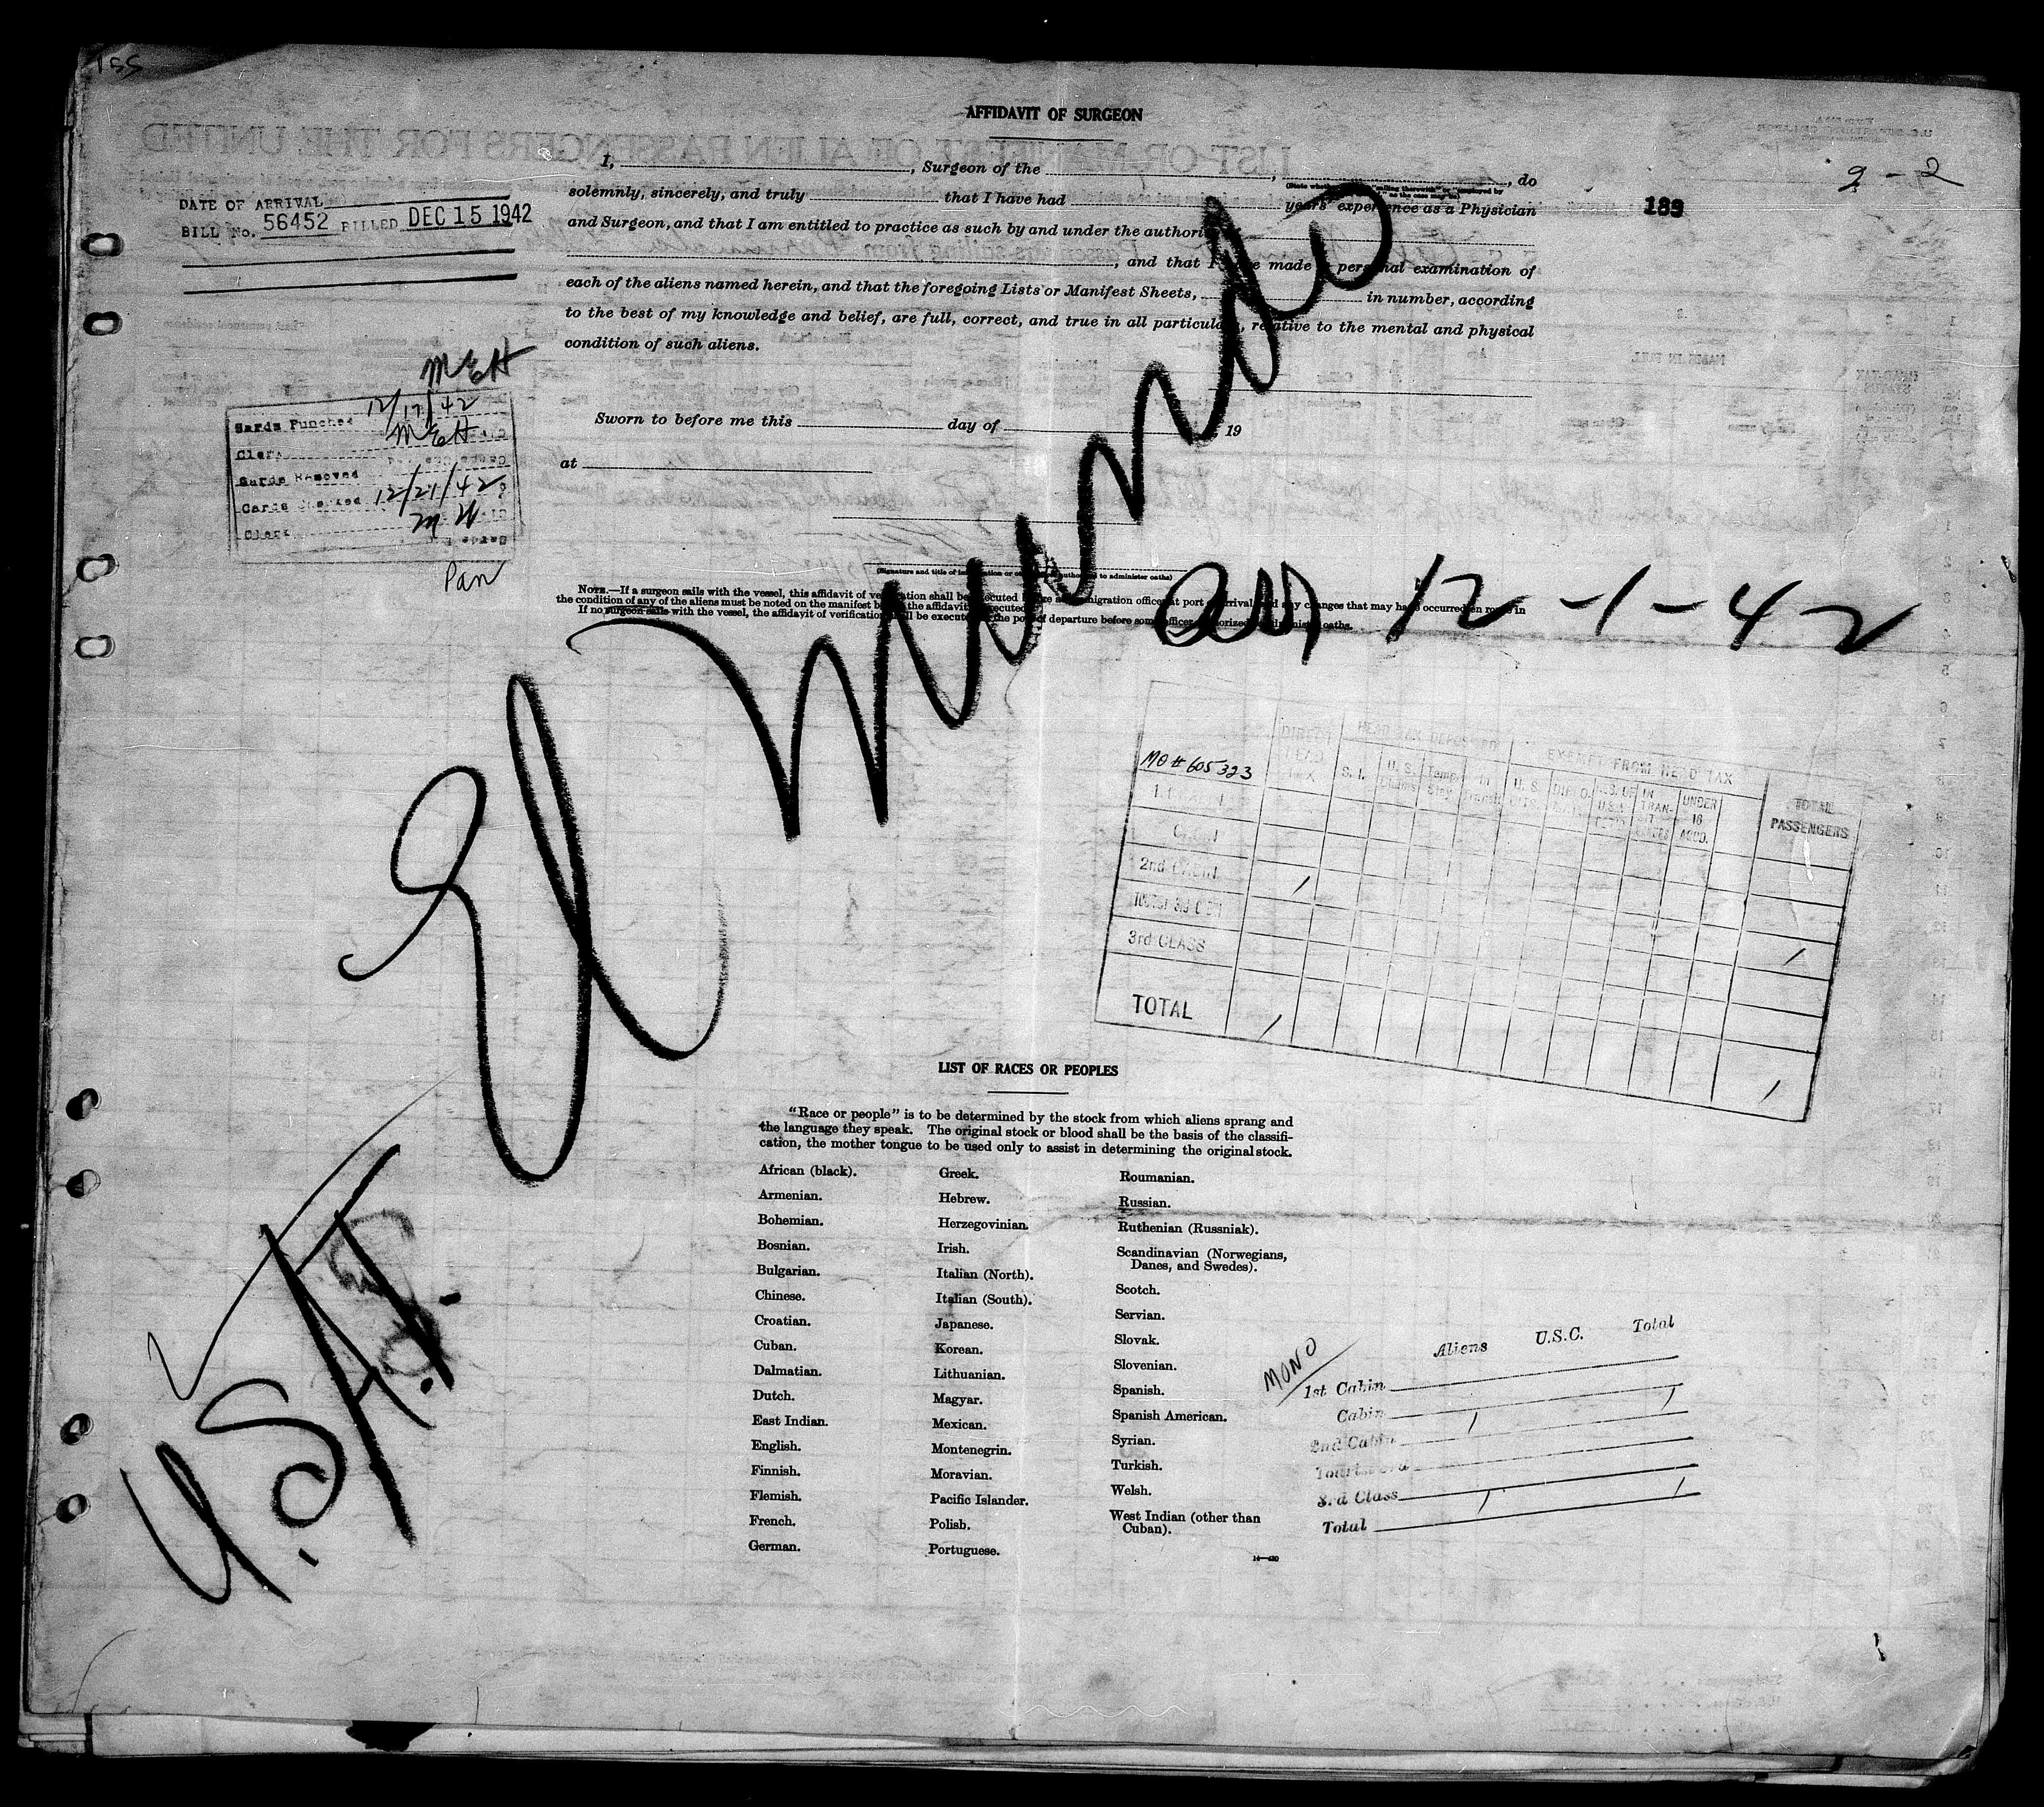 155
AFFIDAVIT OF SURGEON
I, , Surgeon of the , , do
solemnly, sincerely, and truly that I have had years' experience as a Physician
and Surgeon, and that I am entitled to practice as such by and under the authori
, and that I made personal examination of
each of the aliens named herein, and that the foregoing Lists or Manifest Sheets, in number, according
to the best of my knowledge and belief, are full, correct, and true in all particulars, relative to the mental and physical
condition of such aliens.
Sworn to before me this day of 19
at
2-2
189
DATE OF ARRIVAL
BILL No. 56452 BILLED DEC 15 1942
MEH
Cards Punched 12/17/42
Clerk MEH
Cards Removed
Cards Checked 12/21/42
Clerk MW
Pan
(Signature and title of immigration or other authorized to administer oaths)
NOTE.—If a surgeon sails with the vessel, this affidavit of verification shall be executed before an immigration officer at port of arrival and any changes that may have occurred en route in
the condition of any of the aliens must be noted on the manifest before the affidavit is executed.
If no surgeon sails with the vessel, the affidavit of verification shall be executed at the port of departure before some officer authorized to administer oaths.
El Mundo
arr 12-1-42
U.S.A.T.
MO # 605323
DIRECT HEAD TAX
HEAD TAX DEPOSITED
EXEMPT FROM HEAD TAX
TOTAL PASSENGERS
S. I. U. S. Claims Temp Stay In Transit U. S. CITS. DIPLO. IN TRANSIT UNDER 16 ACCD.
1st CABIN
CABIN
2nd CABIN /
TOURIST 3rd CABIN
3rd CLASS /
TOTAL / /
LIST OF RACES OR PEOPLES
"Race or people" is to be determined by the stock from which aliens sprang and
the language they speak. The original stock or blood shall be the basis of the classifi-
cation, the mother tongue to be used only to assist in determining the original stock.
African (black).
Armenian.
Bohemian.
Bosnian.
Bulgarian.
Chinese.
Croatian.
Cuban.
Dalmatian.
Dutch.
East Indian.
English.
Finnish.
Flemish.
French.
German.
Greek.
Hebrew.
Herzegovinian.
Irish.
Italian (North).
Italian (South).
Japanese.
Korean.
Lithuanian.
Magyar.
Mexican.
Montenegrin.
Moravian.
Pacific Islander.
Polish.
Portuguese.
Roumanian.
Russian.
Ruthenian (Russniak).
Scandinavian (Norwegians,
Danes, and Swedes).
Scotch.
Servian.
Slovak.
Slovenian.
Spanish.
Spanish American.
Syrian.
Turkish.
Welsh.
West Indian (other than
Cuban).
MONO
Aliens U.S.C. Total
1st Cabin
Cabin / /
2nd Cabin
Tourist 3rd
3rd Class / /
Total